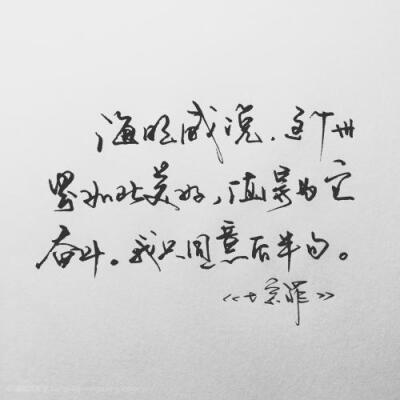 海明威说,这个世
界如此美好,值得为它
奋斗。我只同意后半句。
《七宗罪》